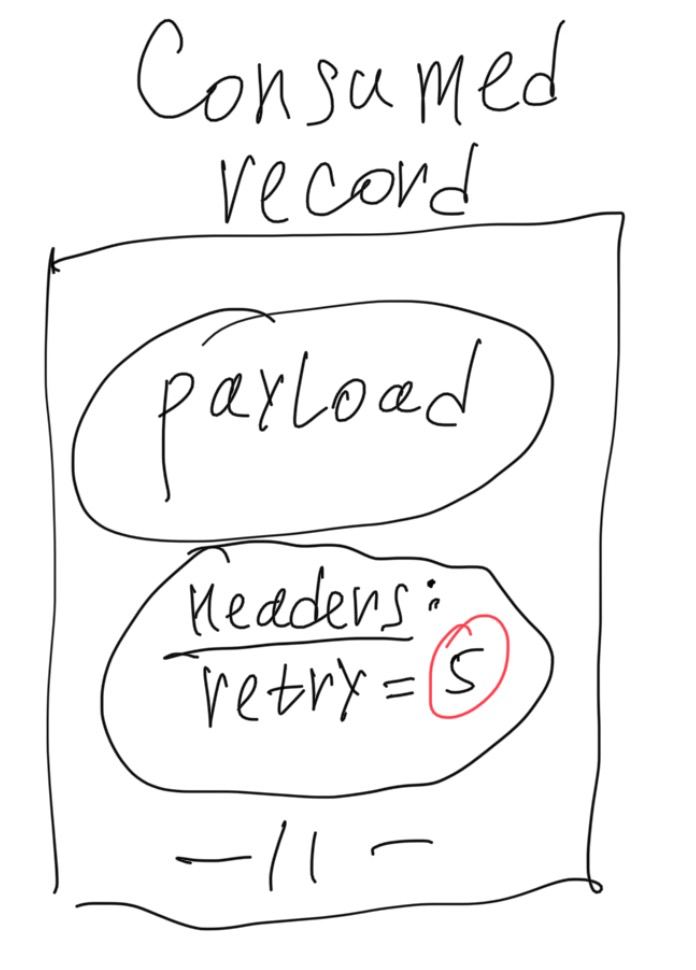 Consumed
record
payload
Headers:
retry = 5
— // —